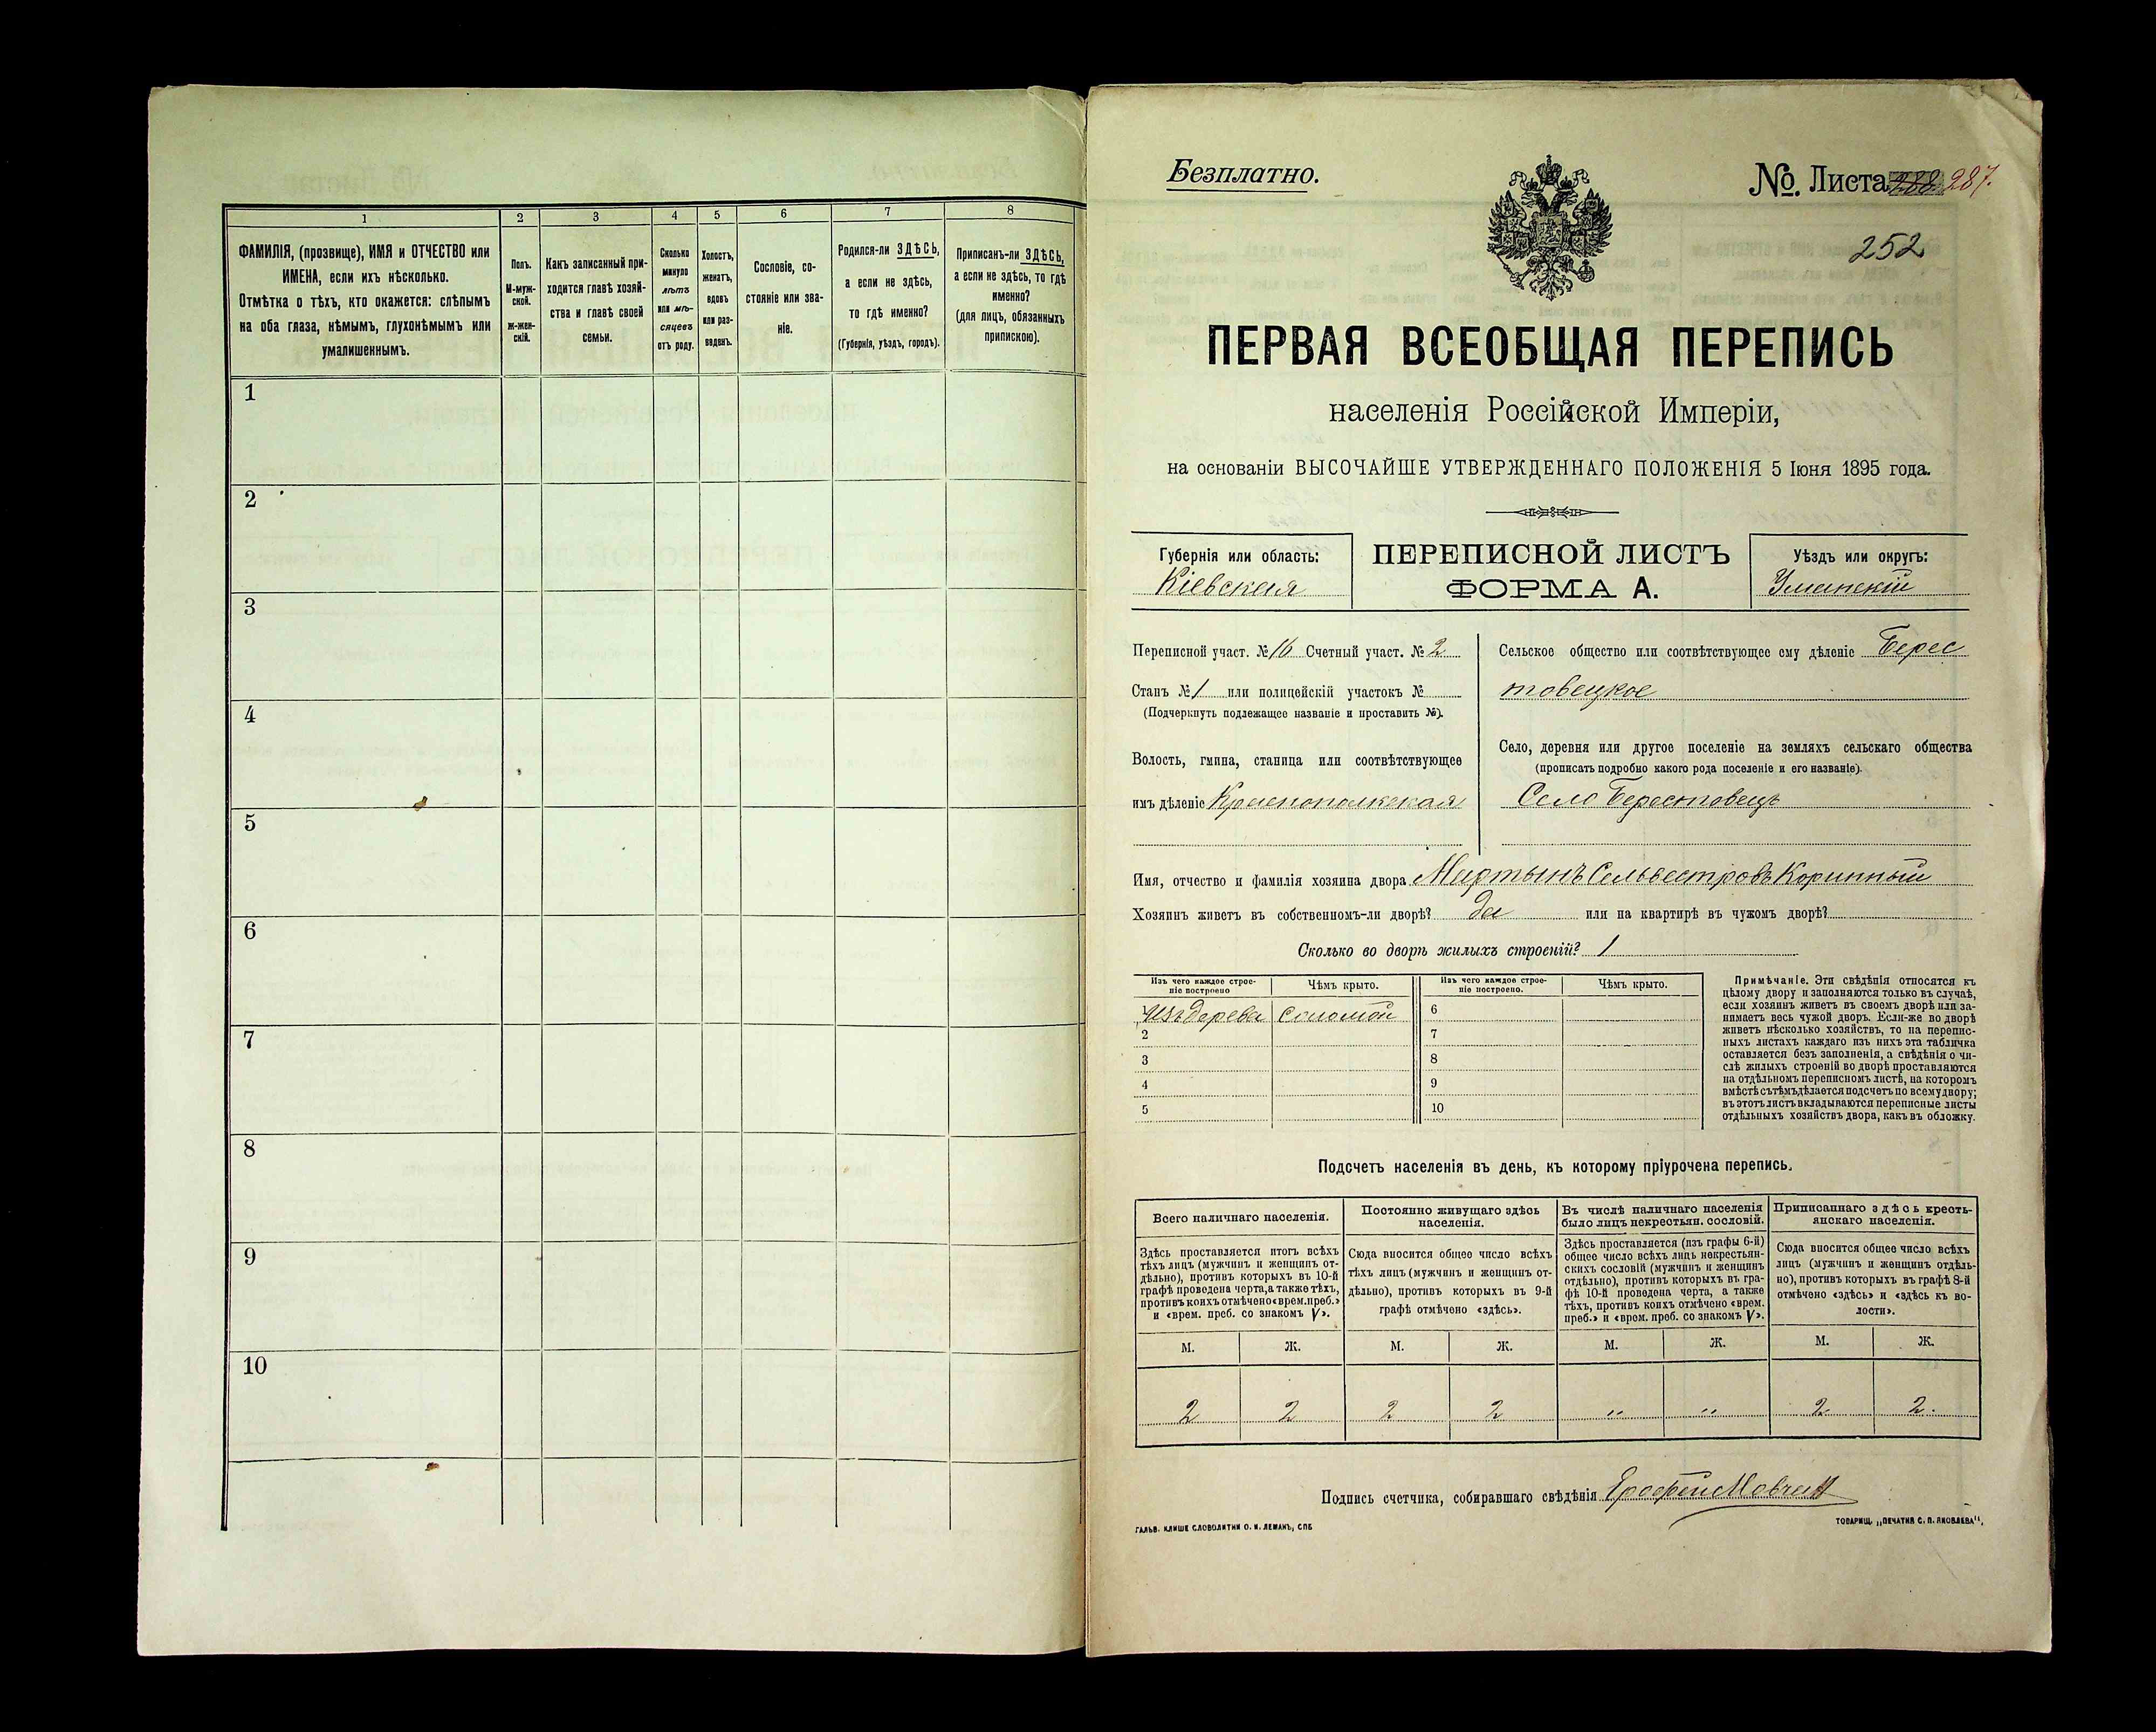 1
2
3
4
5
6
7
8
ФАМИЛІЯ, (прозвище), ИМЯ и ОТЧЕСТВО или
ИМЕНА, если ихъ нѣсколько.
Отмѣтка о тѣхъ, кто окажется: слѣпымъ
на оба глаза, нѣмымъ, глухонѣмымъ или
умалишеннымъ.
Полъ.
М-муж-
ской.
ж-жен-
скій.
Какъ записанный при-
ходится главѣ хозяй-
ства и главѣ своей
семьи.
Сколько
минуло
лѣтъ
или мѣ-
сяцевъ
отъ роду.
Холостъ,
женатъ,
вдовъ
или раз-
веденъ.
Сословіе, со-
стояніе или зва-
ніе.
Родился-ли ЗДѢСЬ,
а если не здѣсь,
то гдѣ именно?
(Губернія, уѣздъ, городъ).
Приписанъ-ли ЗДѢСЬ,
а если не здѣсь, то гдѣ
именно?
(для лицъ, обязанныхъ
припискою).
1
2
3
4
5
6
7
8
9
10
Безплатно.
№. Листа 287.
252
ПЕРВАЯ ВСЕОБЩАЯ ПЕРЕПИСЬ
населенія Россійской Имперіи,
на основаніи ВЫСОЧАЙШЕ УТВЕРЖДЕННАГО ПОЛОЖЕНІЯ 5 Іюня 1895 года.
Губернія или область:
Кіевская
ПЕРЕПИСНОЙ ЛИСТЪ
ФОРМА А.
Уѣздъ или округъ:
Уманскій
Переписной участ. № 16 Счетный участ. № 2
Станъ № 1 или полицейскій участокъ №
(Подчеркнуть подлежащее названіе и проставить №).
Волость, гмина, станица или соотвѣтствующее
имъ дѣленіе Краснопольская
Сельское общество или соотвѣтствующее ему дѣленіе Берес
товецкое
Село, деревня или другое поселеніе на земляхъ сельскаго общества
(прописать подробно какого рода поселеніе и его названіе).
Село Берестовецъ
Имя, отчество и фамилія хозяина двора Мартынъ Сельвестровъ Коринный
Хозяинъ живетъ въ собственномъ-ли дворѣ? да или на квартирѣ въ чужомъ дворѣ?
Сколько во дворѣ жилыхъ строеній? 1
Изъ чего каждое строе-
ніе построено
Чѣмъ крыто.
Изъ чего каждое строе-
ніе построено.
Чѣмъ крыто.
1 Изъ дерева Соломой
2
3
4
5
6
7
8
9
10
Примѣчаніе. Эти свѣдѣнія относятся къ
цѣлому двору и заполняются только въ случаѣ,
если хозяинъ живетъ въ своемъ дворѣ или за-
нимаетъ весь чужой дворъ. Если-же во дворѣ
живетъ нѣсколько хозяйствъ, то на перепис-
ныхъ листахъ каждаго изъ нихъ эта табличка
оставляется безъ заполненія, а свѣдѣнія о чи-
слѣ жилыхъ строеній во дворѣ проставляются
на отдѣльномъ переписномъ листѣ, на которомъ
вмѣстѣ съ тѣмъ дѣлается подсчетъ по всему двору;
въ этотъ листъ вкладываются переписные листы
отдѣльныхъ хозяйствъ двора, какъ въ обложку.
Подсчетъ населенія въ день, къ которому пріурочена перепись.
Всего наличнаго населенія.
Постоянно живущаго здѣсь
населенія.
Въ числѣ наличнаго населенія
было лицъ некрестьян. сословій.
Приписаннаго здѣсь кресть-
янскаго населенія.
Здѣсь проставляется итогъ всѣхъ
тѣхъ лицъ (мужчинъ и женщинъ от-
дѣльно), противъ которыхъ въ 10-й
графѣ проведена черта, а также тѣхъ,
противъ коихъ отмѣчено «врем. преб.»
и «врем. преб. со знакомъ V».
Сюда вносится общее число всѣхъ
тѣхъ лицъ (мужчинъ и женщинъ от-
дѣльно), противъ которыхъ въ 9-й
графѣ отмѣчено «здѣсь».
Здѣсь проставляется (изъ графы 6-й)
общее число всѣхъ лицъ некрестьян-
скихъ сословій (мужчинъ и женщинъ
отдѣльно), противъ которыхъ въ гра-
фѣ 10-й проведена черта, а также
тѣхъ, противъ коихъ отмѣчено «врем.
преб.» и «врем. преб. со знакомъ V».
Сюда вносится общее число всѣхъ
лицъ (мужчинъ и женщинъ отдѣль-
но), противъ которыхъ въ графѣ 8-й
отмѣчено «здѣсь» и «здѣсь къ во-
лости».
М. Ж. М. Ж. М. Ж. М. Ж.
2 2 2 2 " " 2 2.
Подпись счетчика, собиравшаго свѣдѣнія Ерофей Мовчан
ГАЛЬВ. КЛИШЕ СЛОВОЛИТНИ О. И. ЛЕМАНЪ, СПБ
ТОВАРИЩ. „ПЕЧАТНЯ С. П. ЯКОВЛЕВА“,